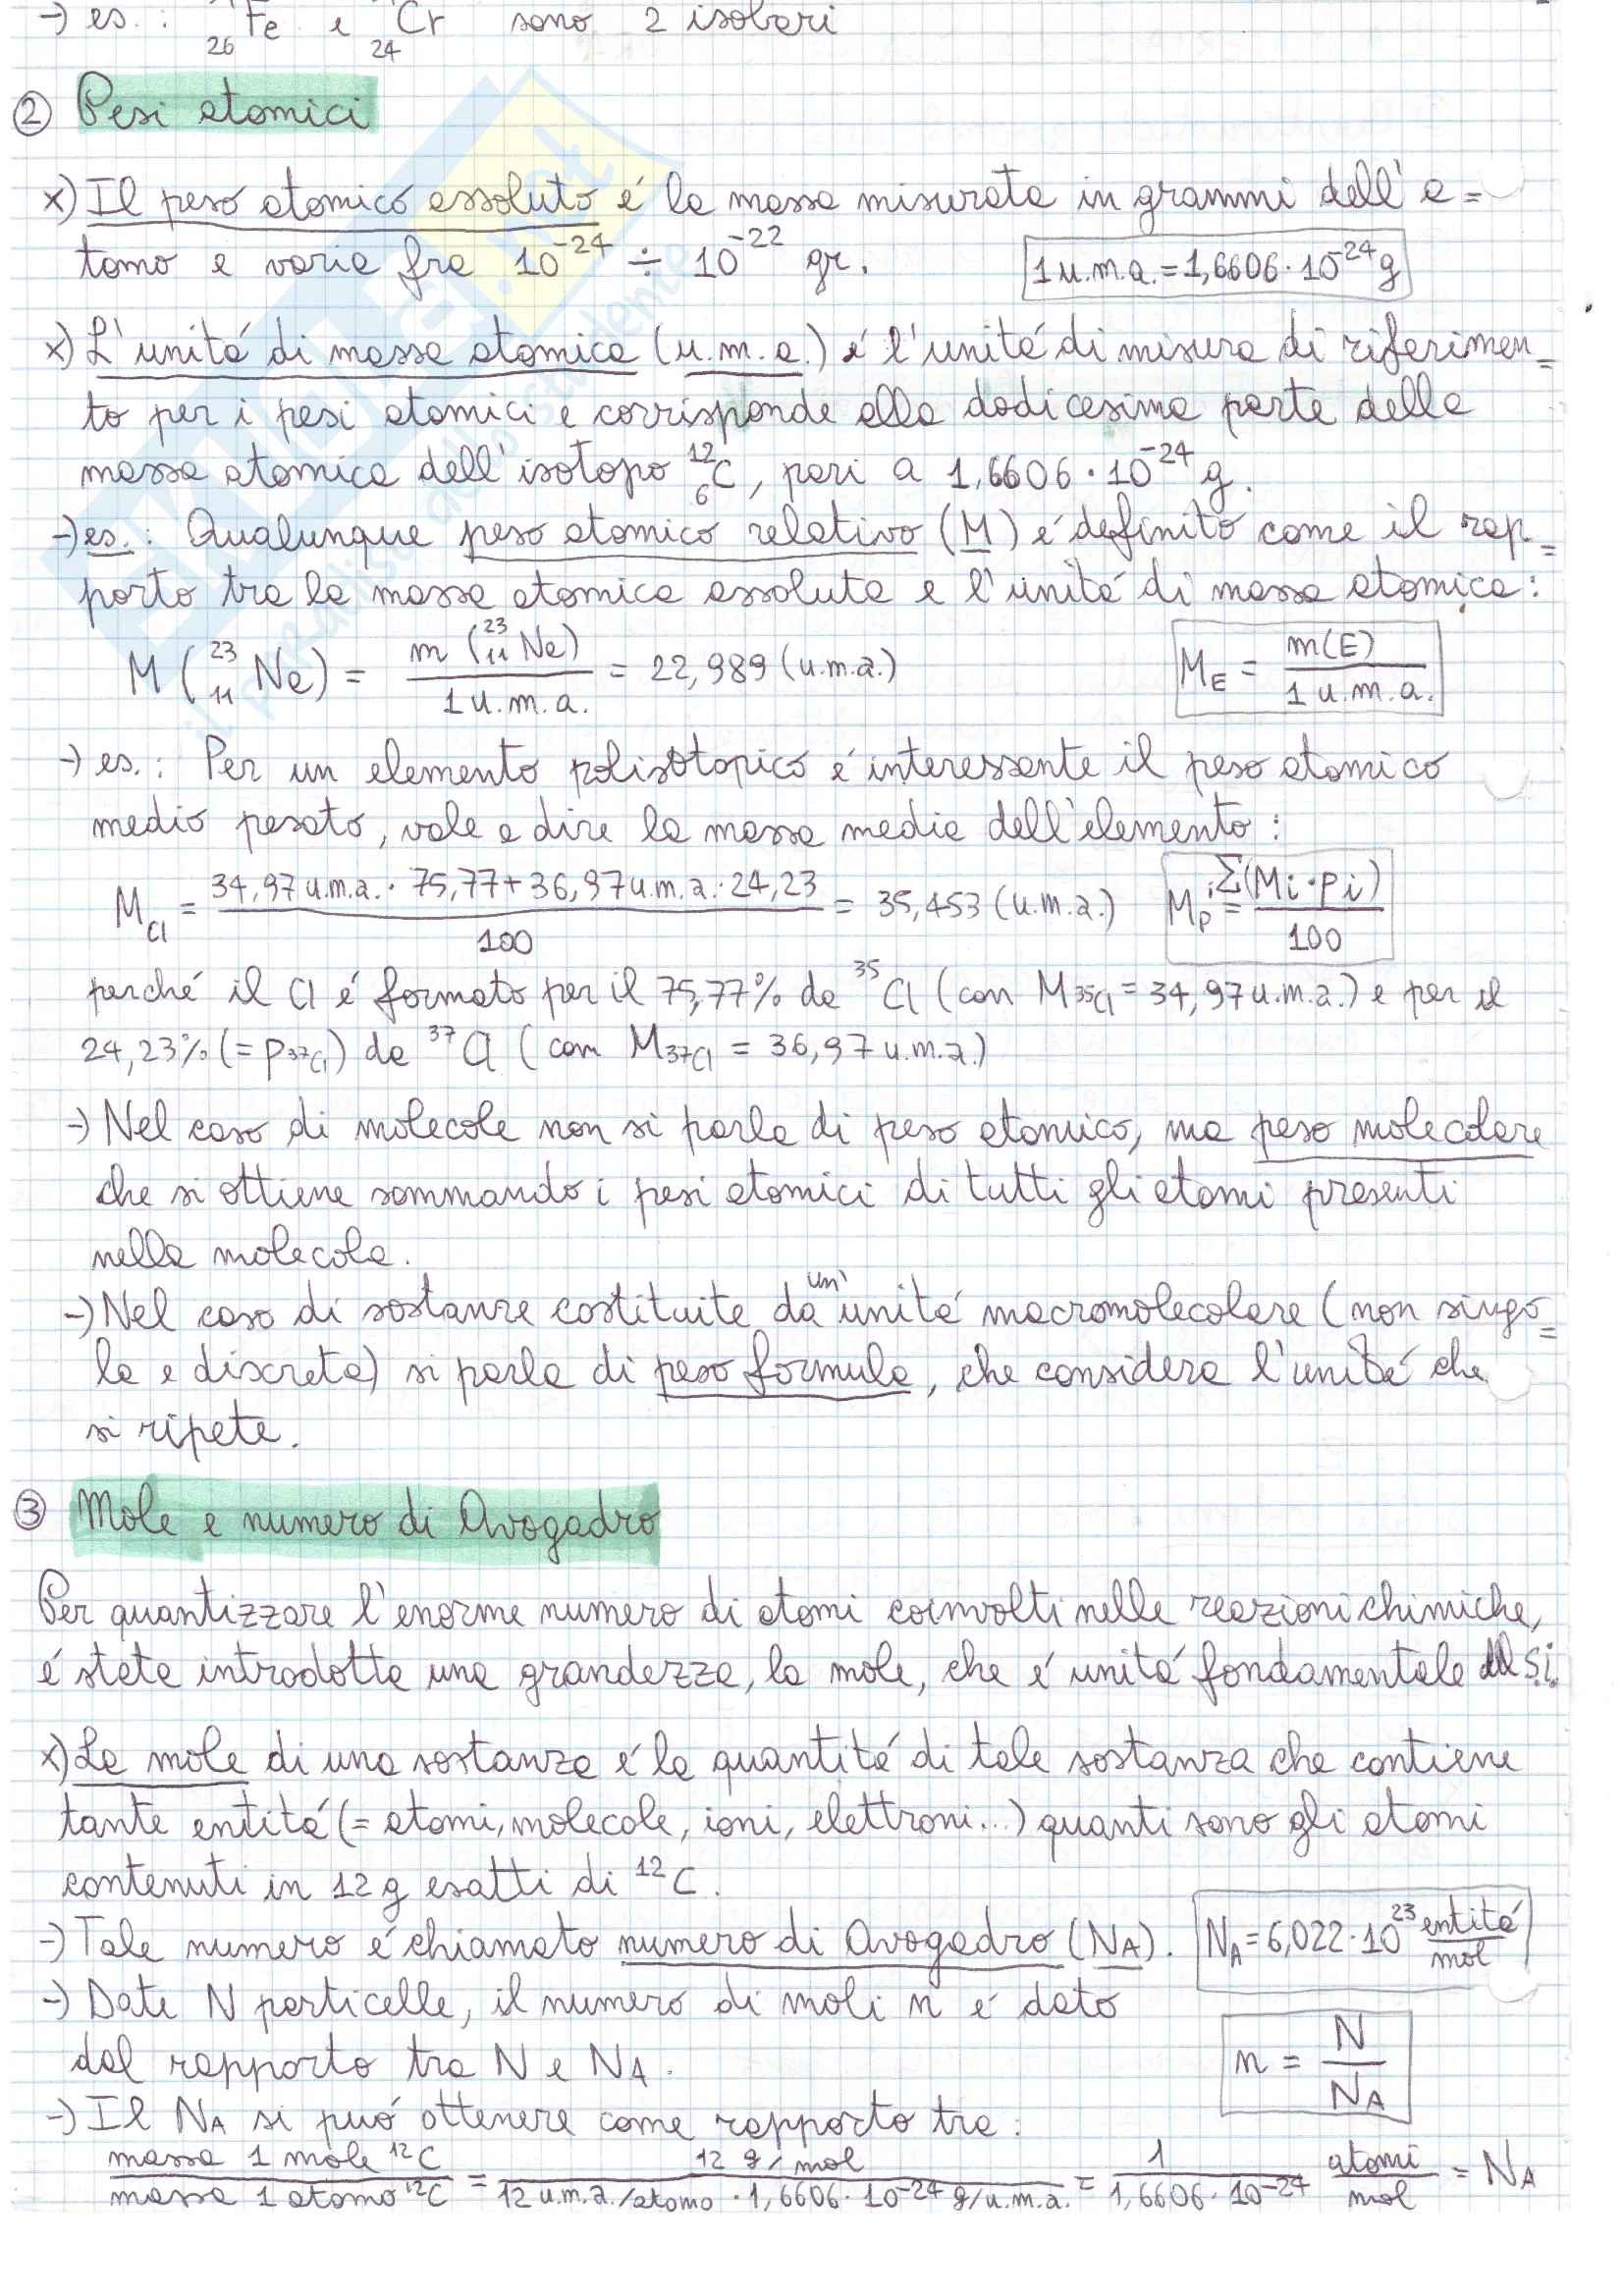 → es.: ₂₆Fe e ₂₄Cr sono 2 isobari
② Pesi atomici
x) Il peso atomico assoluto é la massa misurata in grammi dell'a=
tomo e varia fra 10⁻²⁴ ÷ 10⁻²² gr. 1 u.m.a. = 1,6606·10⁻²⁴ g
x) L'unitá di massa atomica (u.m.a.) é l'unitá di misura di riferimen=
to per i pesi atomici e corrisponde alla dodicesima parte della
massa atomica dell'isotopo ¹²₆C, pari a 1,6606·10⁻²⁴ g.
→ es.: Qualunque peso atomico relativo (M) é definito come il rap=
porto tra la massa atomica assoluta e l'unitá di massa atomica:
M(²³₁₁Na) = m(²³₁₁Na) / 1 u.m.a. = 22,989 (u.m.a.) M_E = m(E) / 1 u.m.a.
→ es.: Per un elemento polisotopico é interessante il peso atomico
medio pesato, vale a dire la massa media dell'elemento:
M_Cl = (34,97 u.m.a. · 75,77 + 36,97 u.m.a. · 24,23) / 100 = 35,453 (u.m.a.) M_P = ᵢΣ(Mi·pi) / 100
perché il Cl é formato per il 75,77% da ³⁵Cl (con M³⁵Cl = 34,97 u.m.a.) e per il
24,23% (= p³⁷Cl) da ³⁷Cl (con M³⁷Cl = 36,97 u.m.a.)
→ Nel caso di molecole non si parla di peso atomico, ma peso molecolare
che si ottiene sommando i pesi atomici di tutti gli atomi presenti
nella molecola.
→ Nel caso di sostanze costituite da un' unitá macromolecolare (non singo=
la e discreta) si parla di peso formula, che considera l'unitá che
si ripete.
③ Mole e numero di Avogadro
Per quantizzare l'enorme numero di atomi coinvolti nelle reazioni chimiche,
é stata introdotta una grandezza, la mole, che é unitá fondamentale del S.i.
x) La mole di una sostanza é la quantitá di tale sostanza che contiene
tante entitá (= atomi, molecole, ioni, elettroni...) quanti sono gli atomi
contenuti in 12 g esatti di ¹²C.
→ Tale numero é chiamato numero di Avogadro (NA). N_A = 6,022·10²³ entitá/mol
→ Date N particelle, il numero di moli n é dato
dal rapporto tra N e NA. n = N / NA
→ Il NA si puó ottenere come rapporto tra:
massa 1 mole ¹²C / massa 1 atomo ¹²C = 12 g/mol / 12 u.m.a./atomo · 1,6606·10⁻²⁴ g/u.m.a. = 1 / 1,6606·10⁻²⁴ atomi/mol = NA